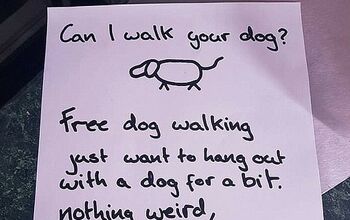 Can I walk your dog?
Free dog walking
just want to hang out
with a dog for a bit.
nothing weird,